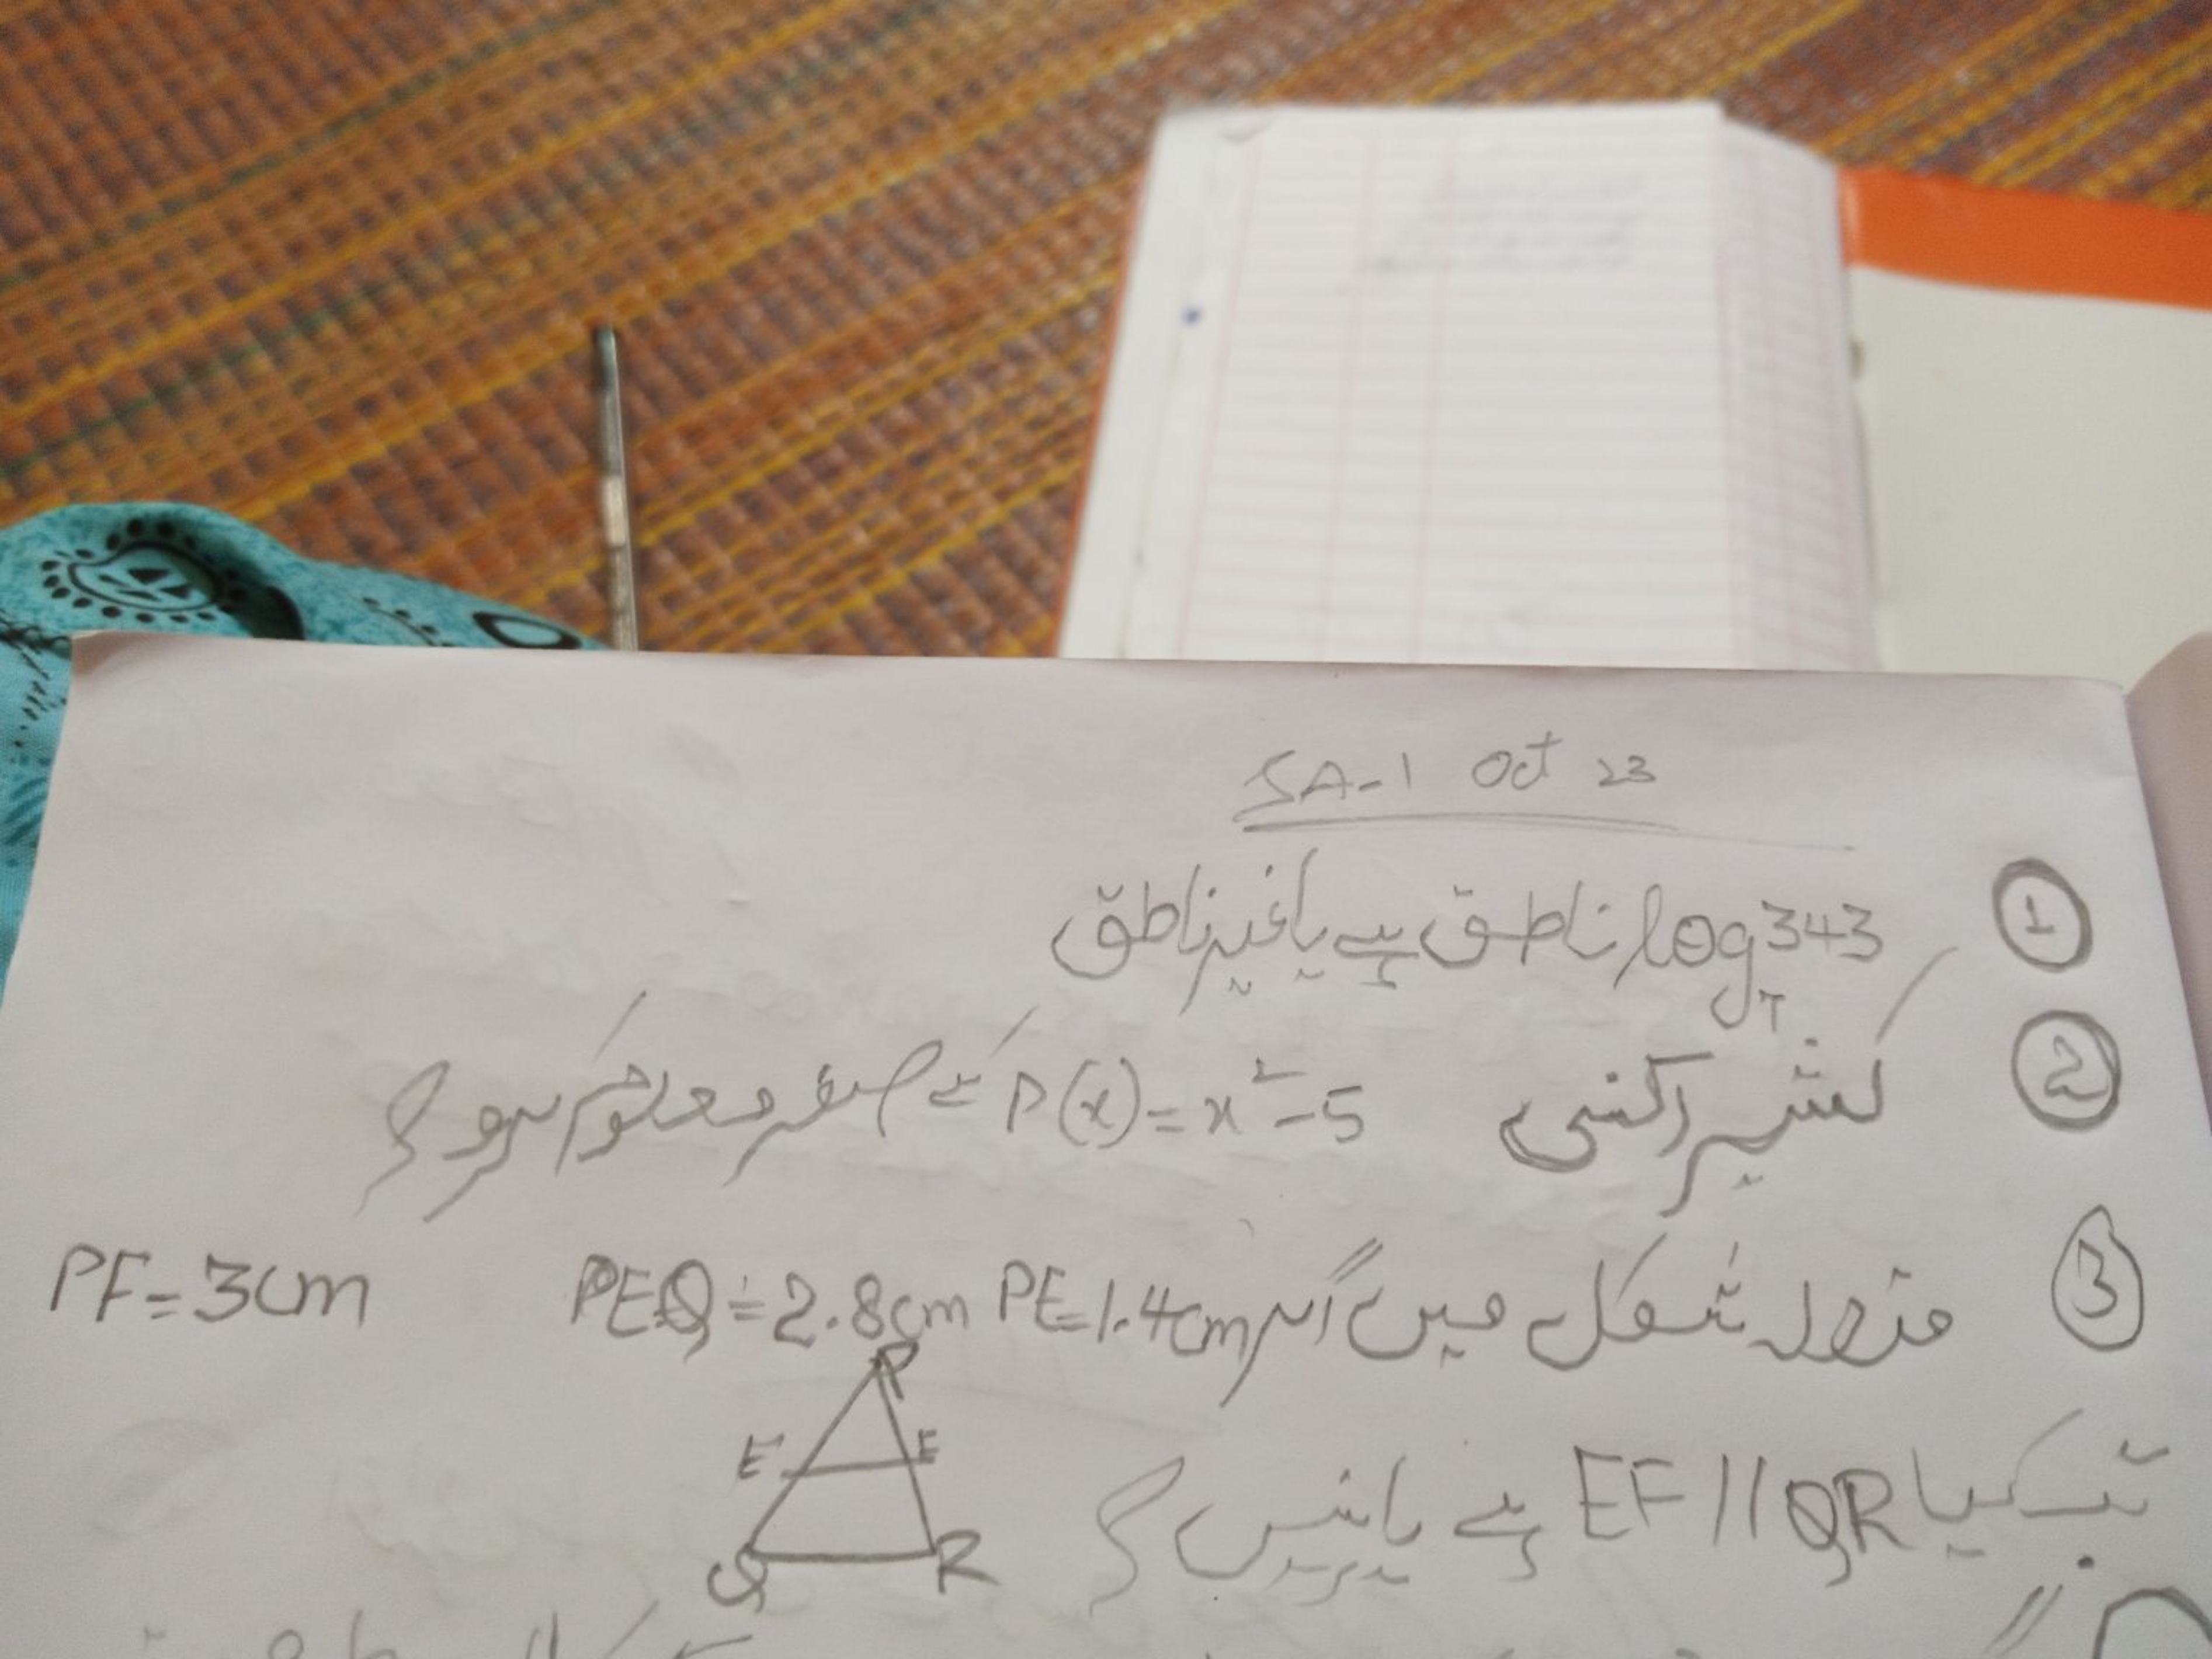 SA-1 Oct 23
① log₇343 ناطق ہے یا غیر ناطق
② کشیر رکنی P(x) = x² - 5 کے صفر معلوم کرو ؟
③ شکل میں اگر PE=1.4cm PEQ=2.8cm PF=3cm
P
E E
Q R
تب کیا EF // QR ہے یا نہیں ؟